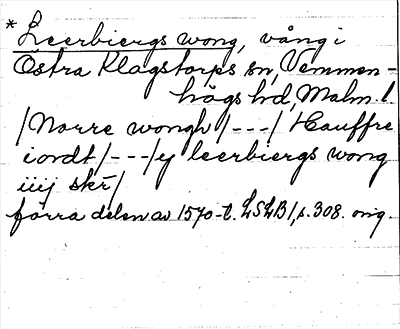 * Leerbiergs wong, vång i
Östra Klagstorps sn, Vemmen-
högs hd, Malm. l.
/Norre wongh/---/ Hauffre
iordt/---/ y leerbiergs wong
iiij skr/
förra delen av 1570-t. LSLB 1, s. 308. orig.